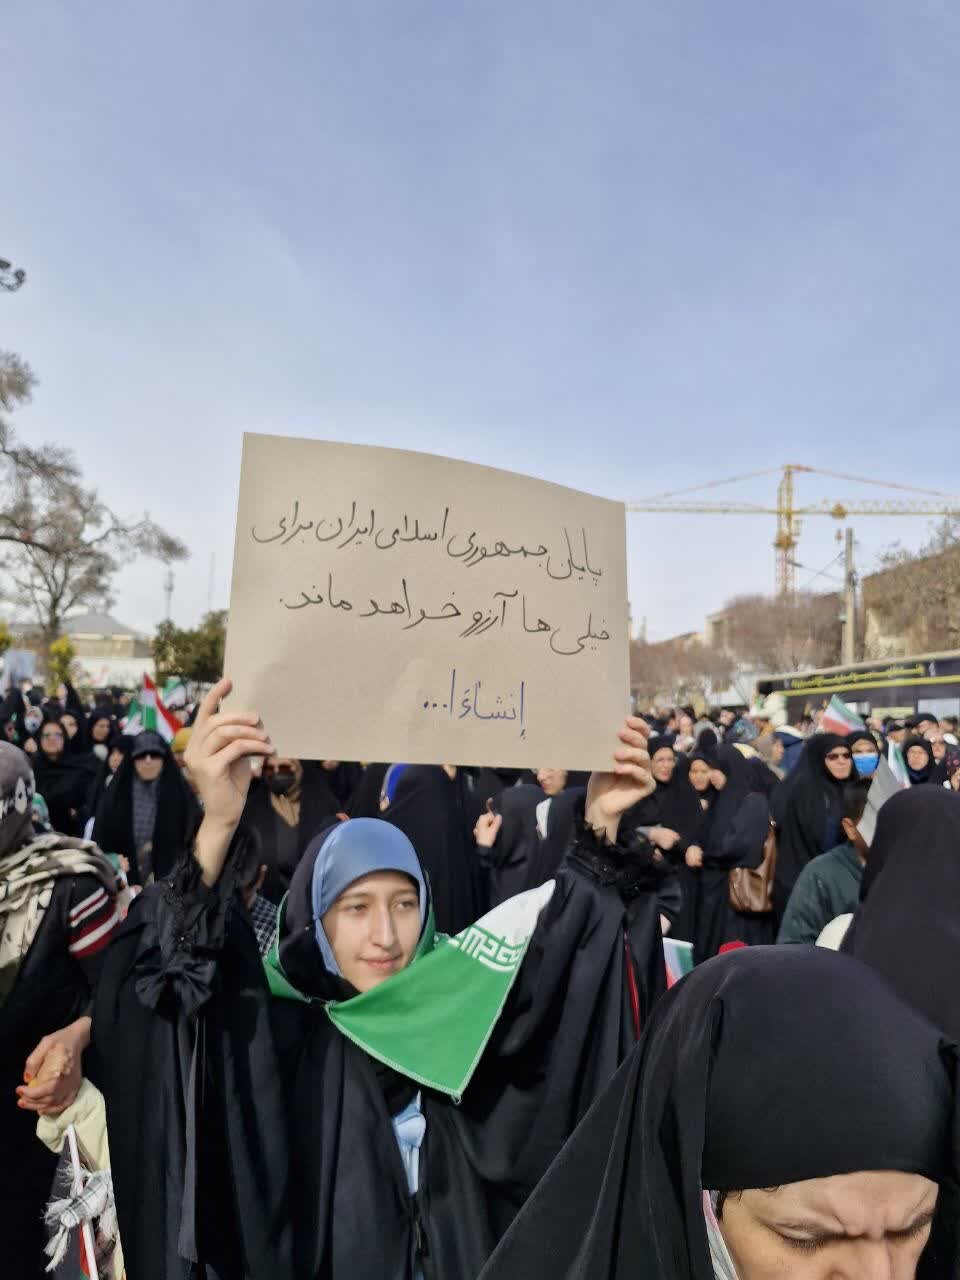 پایان جمهوری اسلامی ایران برای
خیلی ها آرزو خواهد ماند.
إنشاءَا...